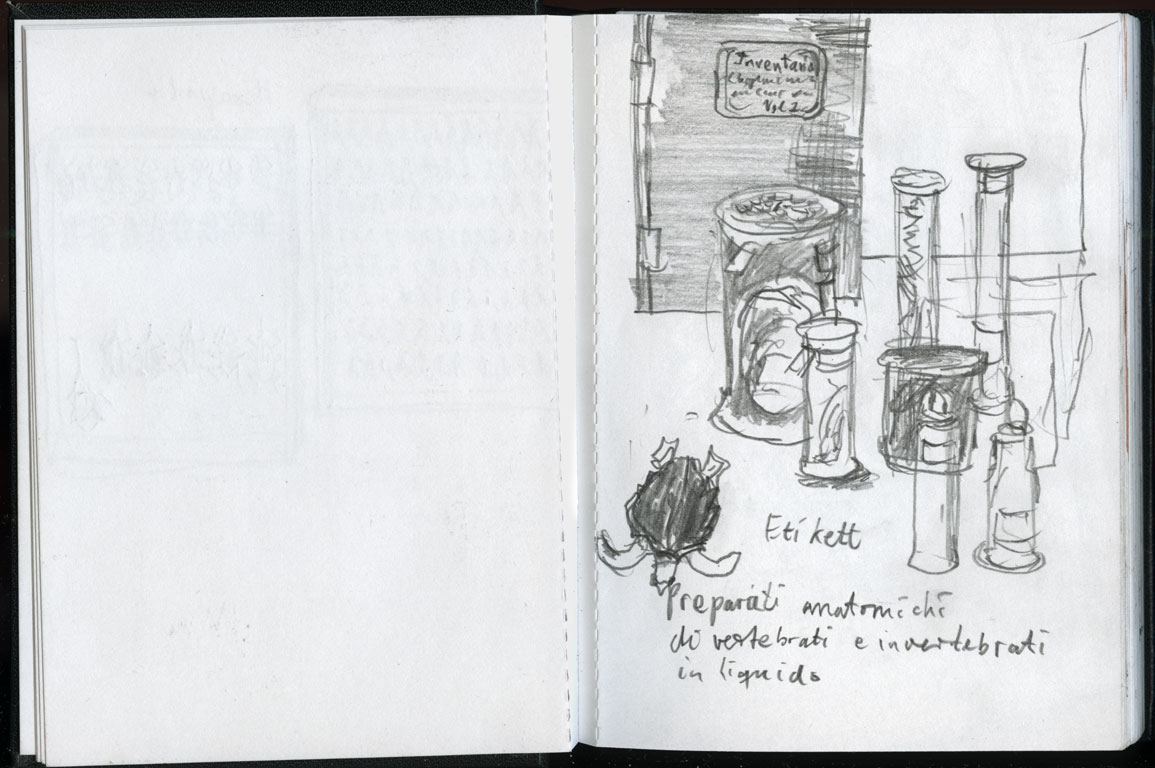 Inventario
Vol 1
Etikett
Preparati anatomichi
di vertebrati e invertebrati
in liquido